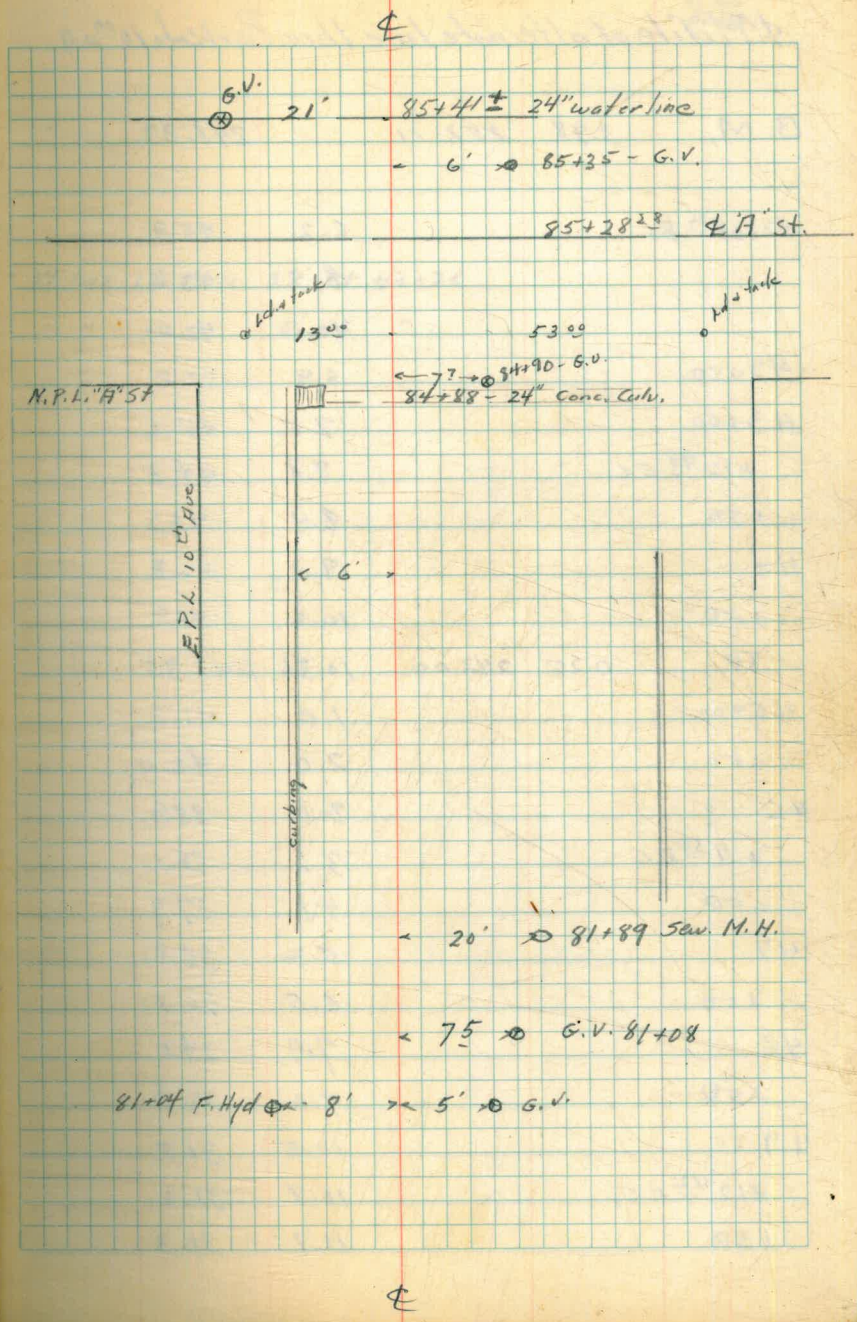 ℄
G.V.
21' 85+41 ± 24" water line
6' 85+35 - G.V.
85+28²⁸ ℄ "A" St.
Ld + tack
Ld + tack
13⁰⁰ 53⁰⁰
7? 84+90 - G.V.
N.P.L. "A" St 84+88 - 24" Conc. Culv.
E.P.L. 10th Ave
6'
curbing
20' 81+89 Sew. M.H.
7⁵ G.V. 81+08
81+04 F. Hyd 8' 5' G.V.
℄